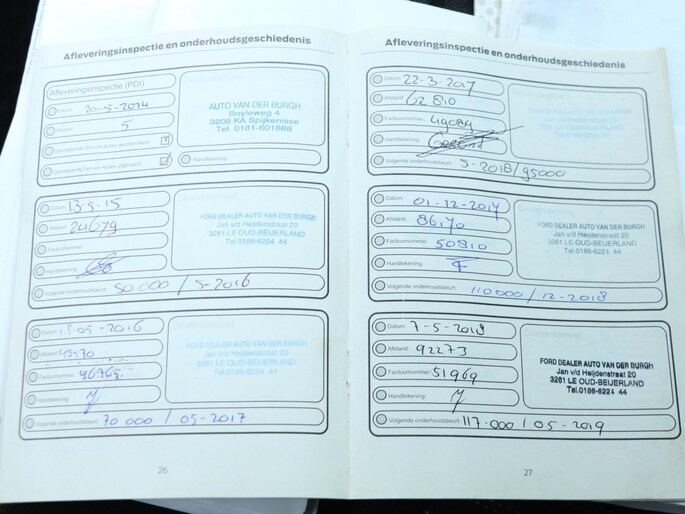 Afleveringsinspectie en onderhoudsgeschiedenis
Afleveringsinspectie (PDI)
Datum 20-5-2014
Afstand 5
Handtekening:
AUTO VAN DER BURGH
Boyleweg 4
3208 KA Spijkenisse
Tel. 0181-601888
Datum 13-5-15
Afstand 24679
Factuurnummer
Handtekening
Volgende onderhoudsbeurt 50000 / 5-2016
FORD DEALER AUTO VAN DER BURGH
Jan v/d Heijdenstraat 20
3261 LE OUD-BEIJERLAND
Tel.0186-6224 44
Datum 18-05-2016
Afstand 45570
Factuurnummer 46765
Handtekening
Volgende onderhoudsbeurt 70 000 / 05-2017
FORD DEALER AUTO VAN DER BURGH
Jan v/d Heijdenstraat 20
3261 LE OUD-BEIJERLAND
Tel.0186-6224 44
26
Afleveringsinspectie en onderhoudsgeschiedenis
Datum 22-3-2017
Afstand 62810
Factuurnummer 49089
Handtekening
Volgende onderhoudsbeurt 5-2018/95000
Datum 01-12-2017
Afstand 86170
Factuurnummer 50810
Handtekening
Volgende onderhoudsbeurt 110000 / 12-2018
FORD DEALER AUTO VAN DER BURGH
Jan v/d Heijdenstraat 20
3261 LE OUD-BEIJERLAND
Tel.0186-6224 44
Datum 7-5-2018
Afstand 92273
Factuurnummer 51969
Handtekening
Volgende onderhoudsbeurt 117.000 / 05-2019
FORD DEALER AUTO VAN DER BURGH
Jan v/d Heijdenstraat 20
3261 LE OUD-BEIJERLAND
Tel.0186-6224 44
27